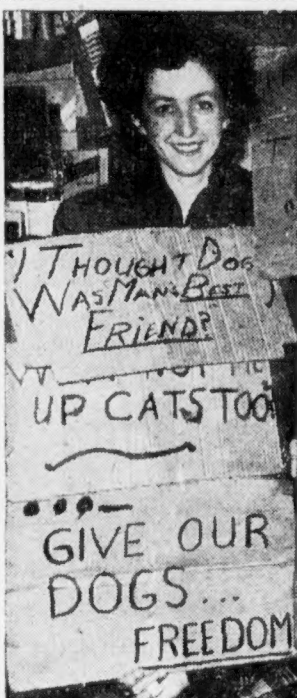 "I THOUGHT DOG
WAS MAN'S BEST
FRIEND?
UP CATS TOO?
...—
GIVE OUR
DOGS...
FREEDOM